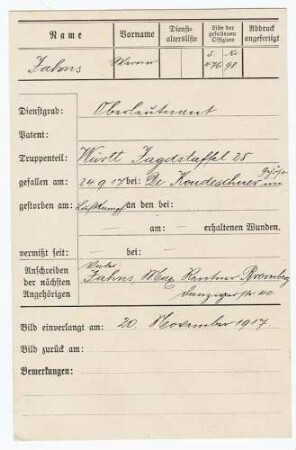 Name Vorname Dienst-altersliste Liste der gefallenen Offiziere Abdruck angefertigt
S. Nr.
Jahns Werner 476 98
Dienstgrad: Oberleutnant
Patent:
Truppenteil: Württ Jagdstaffel 28
gefallen am: 24.9.17 bei: De im
gestorben am: Luftkampf an den bei:
— am: — erhaltenen Wunden.
vermißt seit: bei: —
Anschreiben der nächsten Angehörigen
Vater
Jahns, Max Rentner Bromberg
Danzigerstr. 40
Bild einverlangt am: 20. November 1917
Bild zurück am:
Bemerkungen: